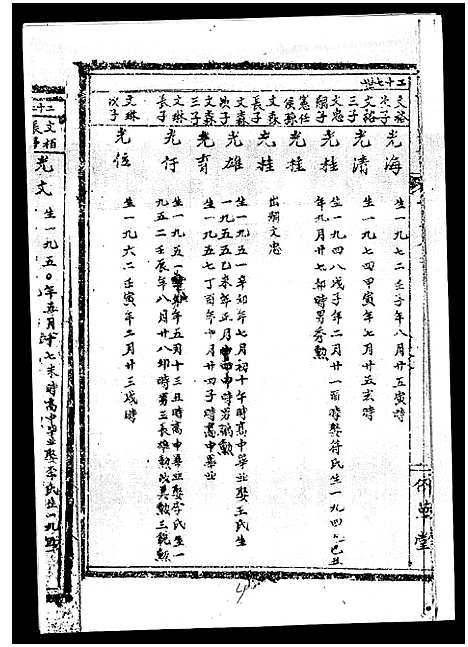 二十七世
文裕
次子
光海
生一九七二壬子年八月廿五寅時
文裕
三子
光清
生一九七四甲寅年七月廿五亥時
文忠
嗣子
光桂
生一九四八戊子年二月廿一酉時娶符氏生一九四九己丑
年九月廿七卯時男秀勲
憲任
侯孫
光桂
文森
長子
光桂
出嗣文忠
文森
次子
光雄
生一九五一辛卯年七月初十午時高中畢业娶王氏生
一九五五乙未年正月四申時男
文森
三子
光育
生一九五七丁酉年十月廿四子時高中畢业
文琳
長子
光仔
生一九五一辛卯年五月十三丑時高中畢业娶李氏生一
九五二壬辰年八月廿八卯時男三長雄勲次昊勲三毅勲
文琳
次子
光位
生一九六二壬寅年二月廿三戌時
二十二
文栢
長子
光文
生一九五〇年五月十七未時高中畢业娶李氏生一九五
草堂